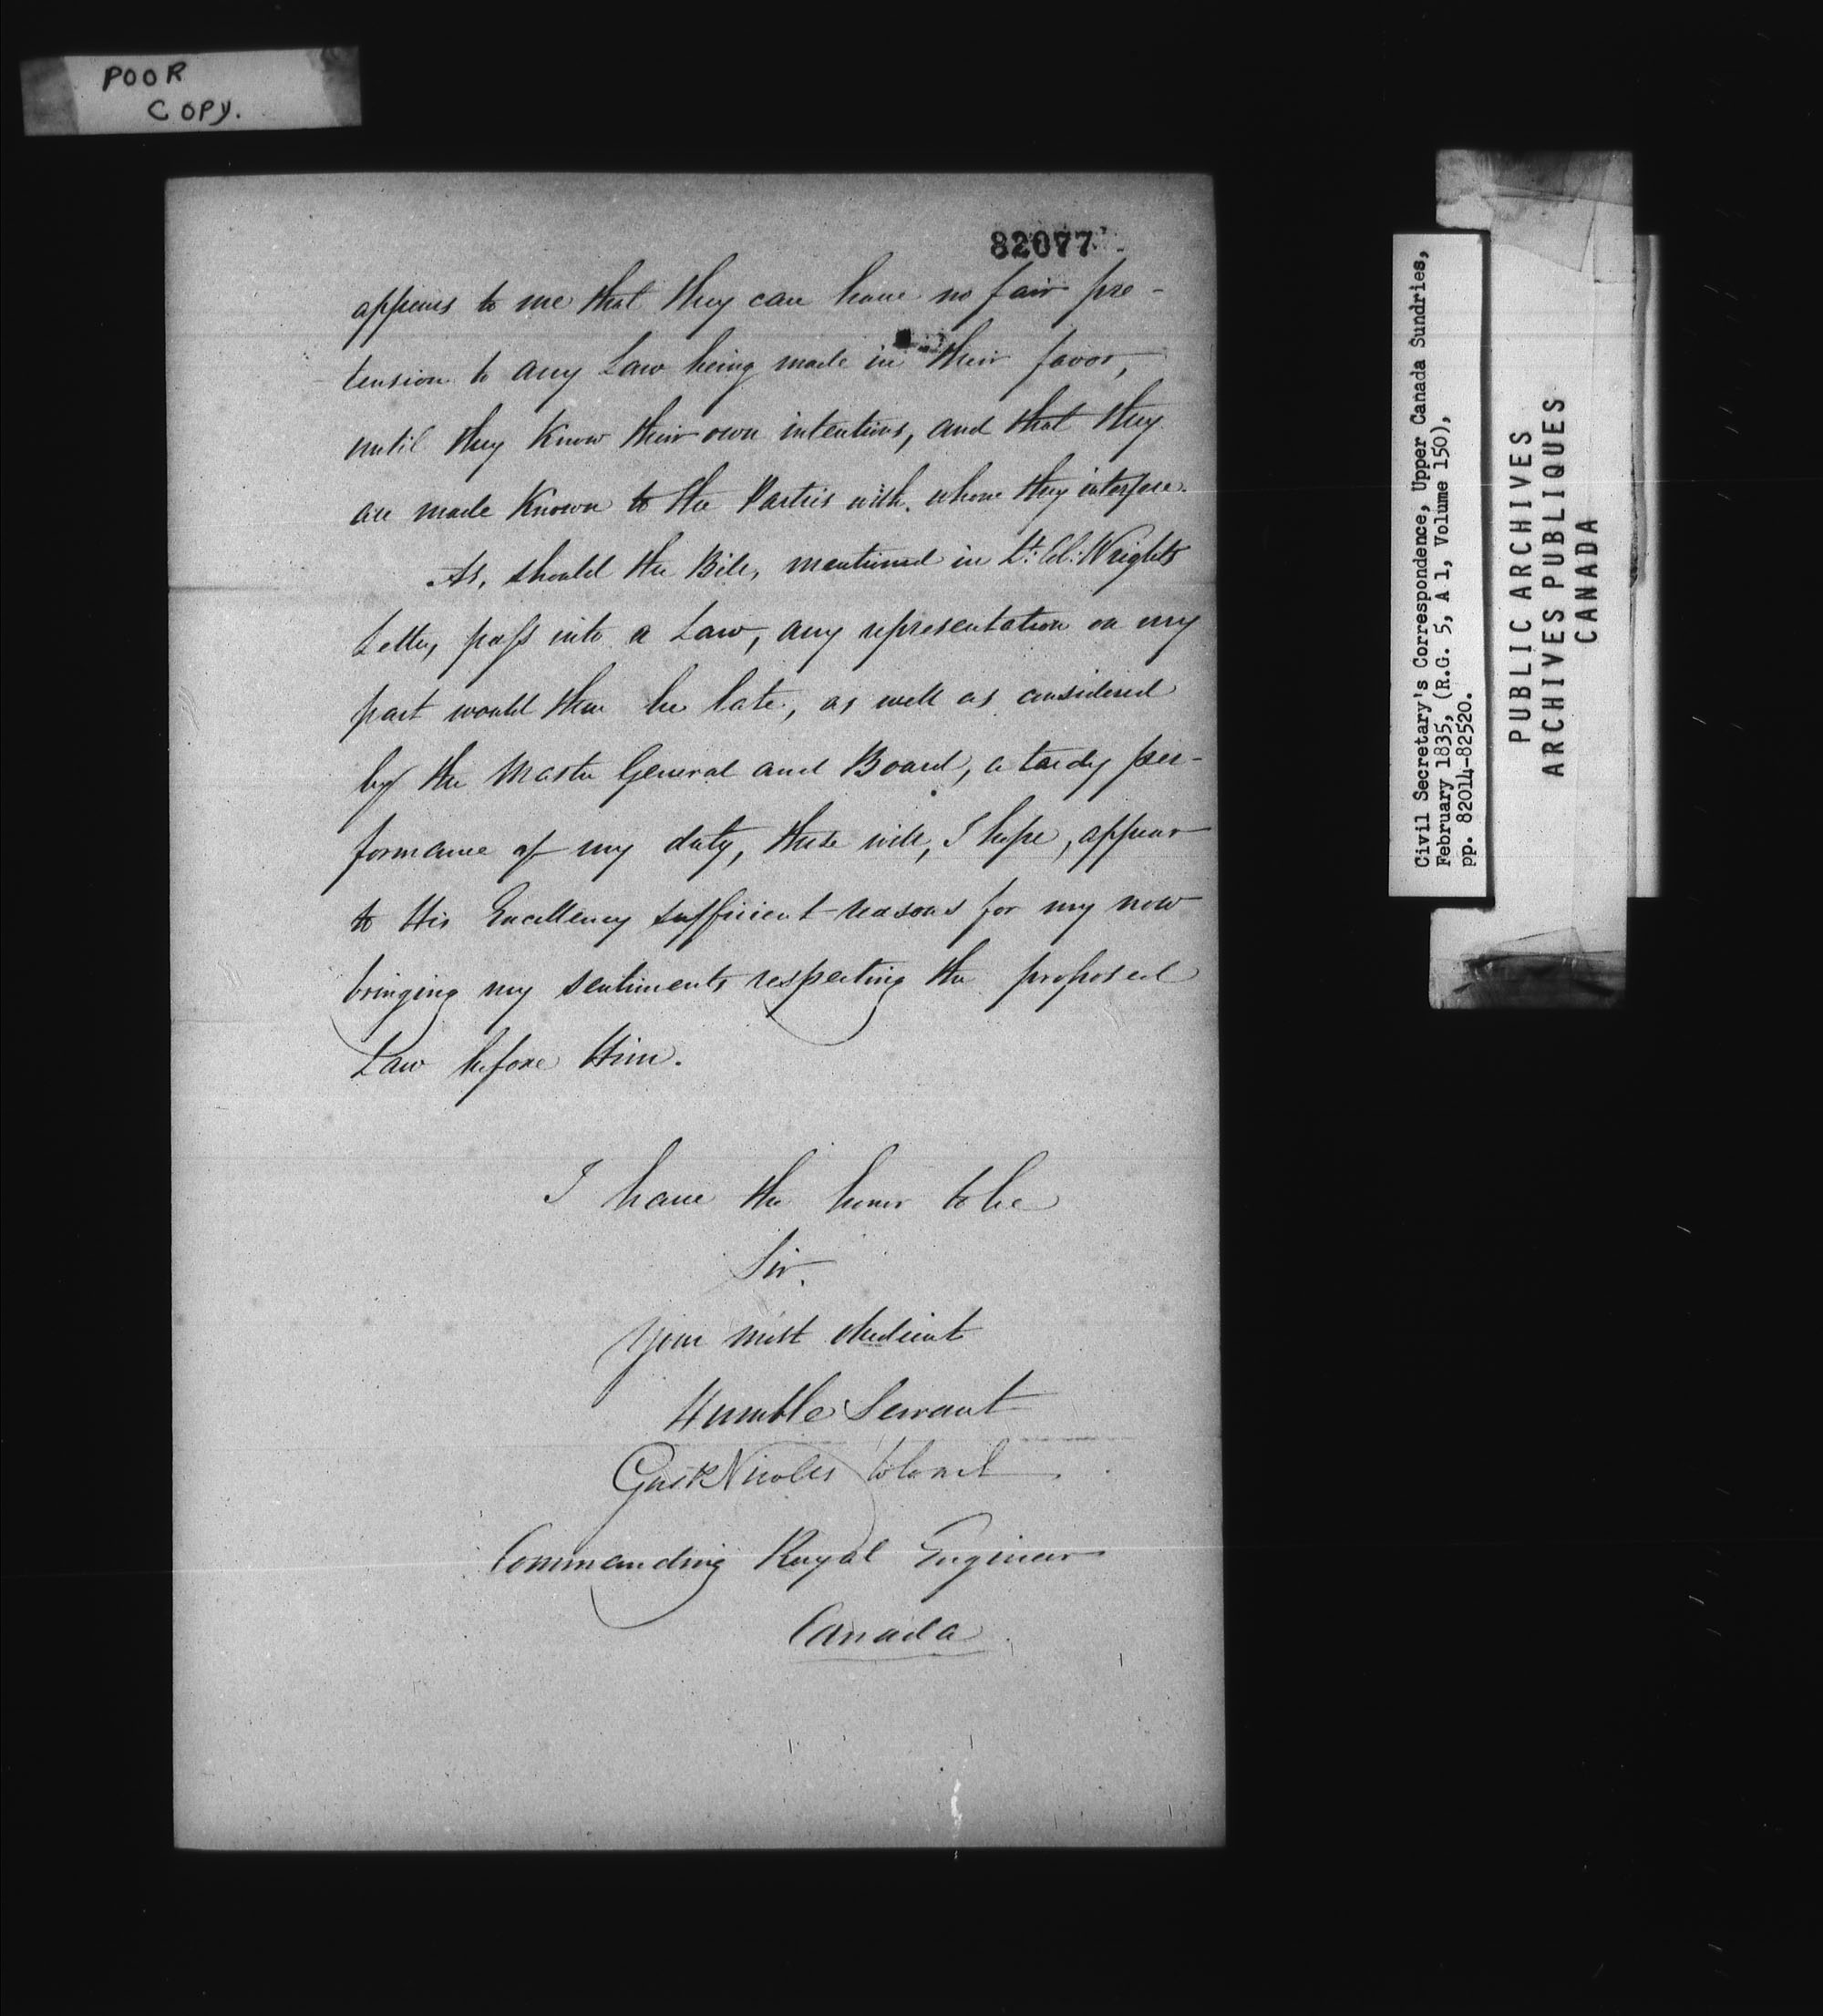 POOR
COPY.
82077
appears to me that they can have no fair pre-
tension to any Law being made in their favor,
until they Know their own intentions, and that they
are made Known to the Parties with whom they interfere.
As, should the Bill, mentioned in Lt: Col: Wrights
Letter, pass into a Law, any representation on my
part would then be late, as well as considered
by the Master General and Board, a tardy per-
formance of my duty, these will, I hope, appear
to His Excellency sufficient reasons for my now
bringing my sentiments respecting the proposed
Law before Him.
I have the honor to be
Sir.
Your most obedient
Humble Servant
Gus Nicolls Colonel
Commanding Royal Engineer
Canada
Civil Secretary's Correspondence, Upper Canada Sundries,
February 1835, (R.G. 5, A 1, Volume 150),
pp. 82014-82520.
PUBLIC ARCHIVES
ARCHIVES PUBLIQUES
CANADA